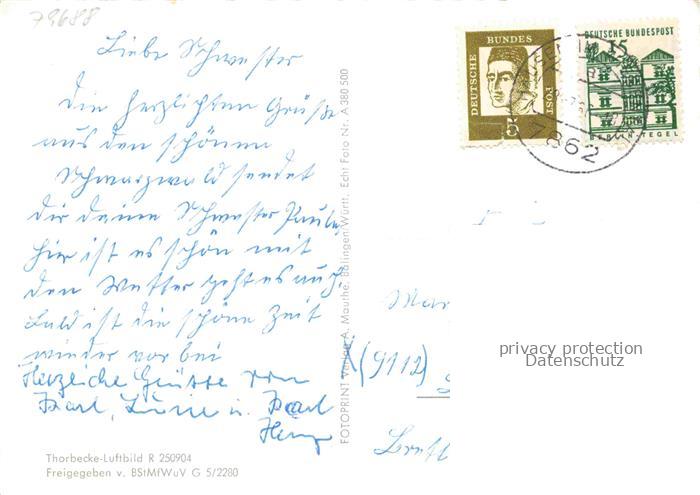 79688
Liebe Schwester
Die herzlichsten Grüße
aus den schönen
Schwarzwald sendet
dir deine Schwester Paula
hier ist es schön mit
den Wetter geht es auch.
bald ist die schöne Zeit
wieder vor bei
Herzliche Grüsse von
Karl, u. Karl
Thorbecke-Luftbild R 250904
Freigegeben v. BStMfWuV G 5/2280
FOTOPRINT Verlag A. Mauthe, Balingen/Württ. Echt Foto Nr. A 380 500
DEUTSCHE BUNDES POST
5
15
DEUTSCHE BUNDESPOST
TEGEL
7862
(9112)
privacy protection
Datenschutz